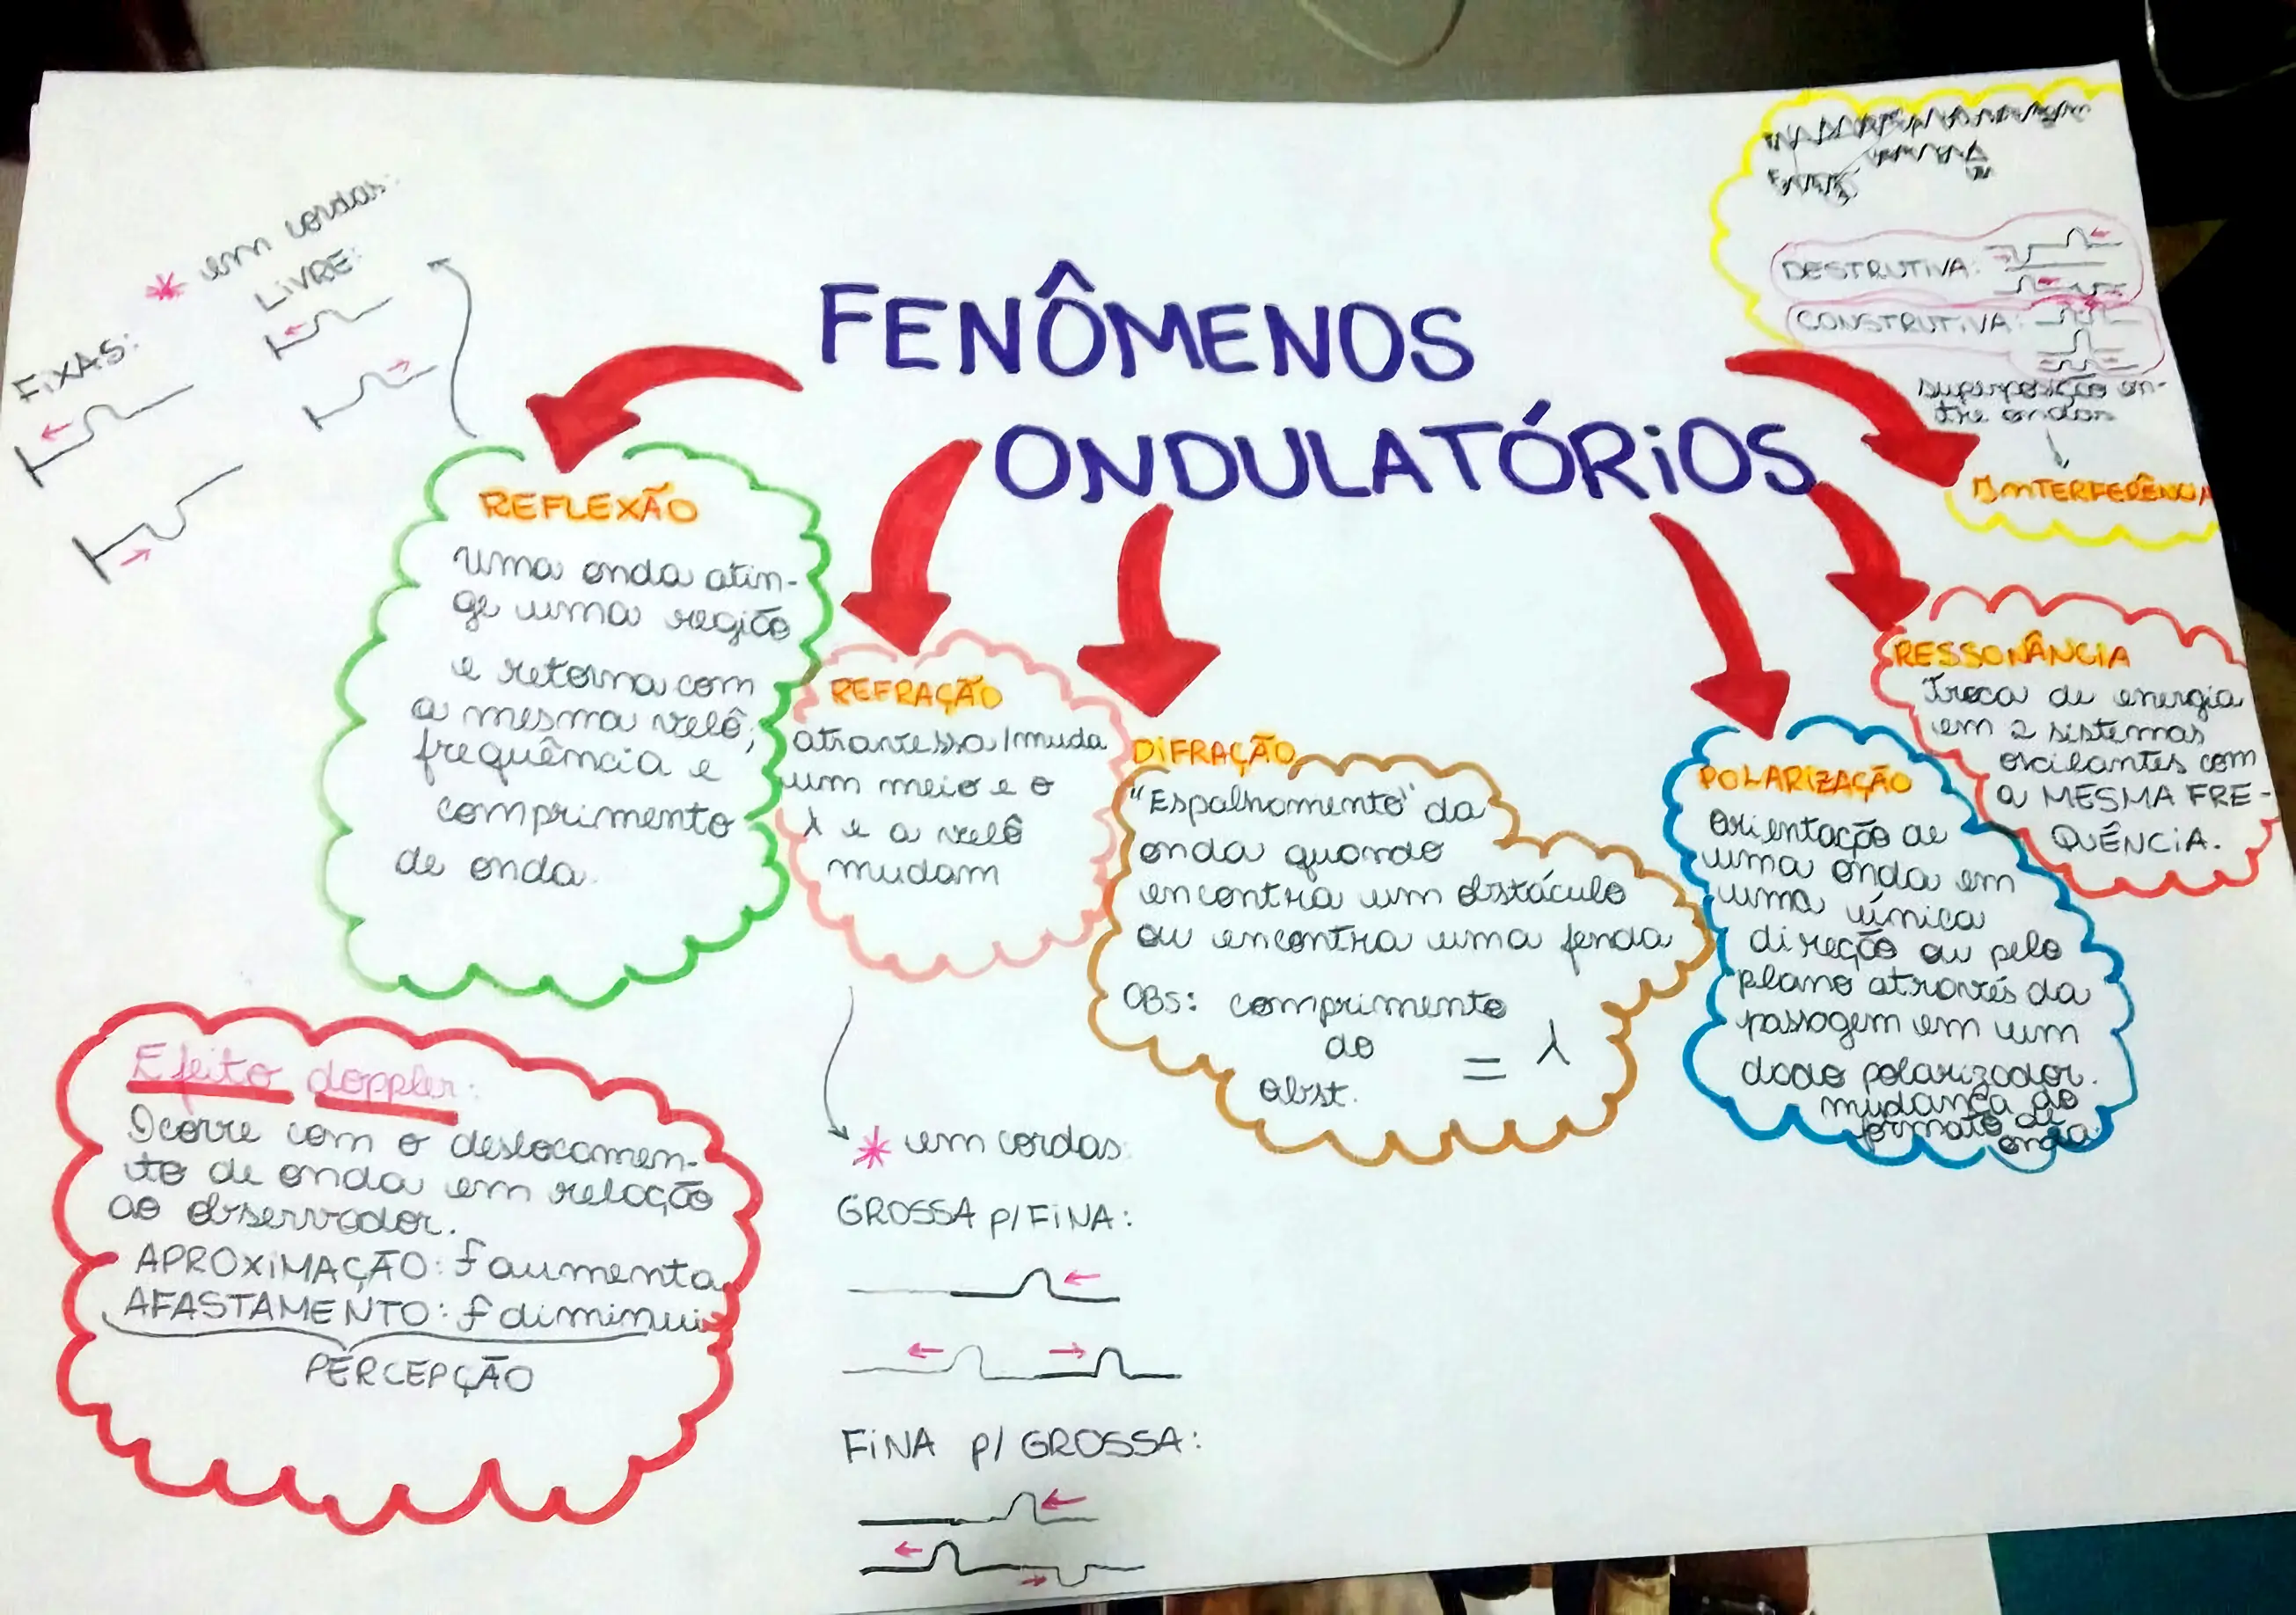 FENÔMENOS
ONDULATÓRIOS
* em cordas:
LIVRE:
FIXAS:
REFLEXÃO
uma onda atin-
ge uma região
e retorna com
a mesma velô,
frequência e
comprimento
de onda.
REFRAÇÃO
atravessa/muda
um meio e o
λ e a velô
mudam
* em cordas:
GROSSA p/ FINA:
FINA p/ GROSSA:
DIFRAÇÃO
"Espalhamento" da
onda quando
encontra um obstáculo
ou encontra uma fenda
OBS: comprimento
do
obst. = λ
POLARIZAÇÃO
orientação de
uma onda em
uma única
direção ou pelo
plano através da
passagem em um
dado polarizador.
mudança do
formato de
onda
RESSONÂNCIA
Troca de energia
em 2 sistemas
oscilantes com
a MESMA FRE-
QUÊNCIA.
DESTRUTIVA:
CONSTRUTIVA:
superposição en-
tre ondas
INTERFERÊNCIA
Efeito doppler:
Ocorre com o deslocamen-
to de onda em relação
ao observador.
APROXIMAÇÃO: f aumenta
AFASTAMENTO: f diminui
PERCEPÇÃO